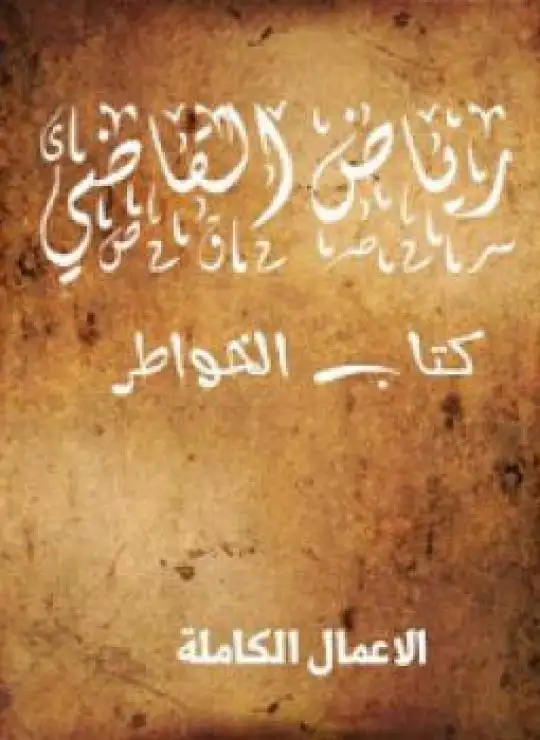 رياض القاضي
كتاب الخواطر
الاعمال الكاملة